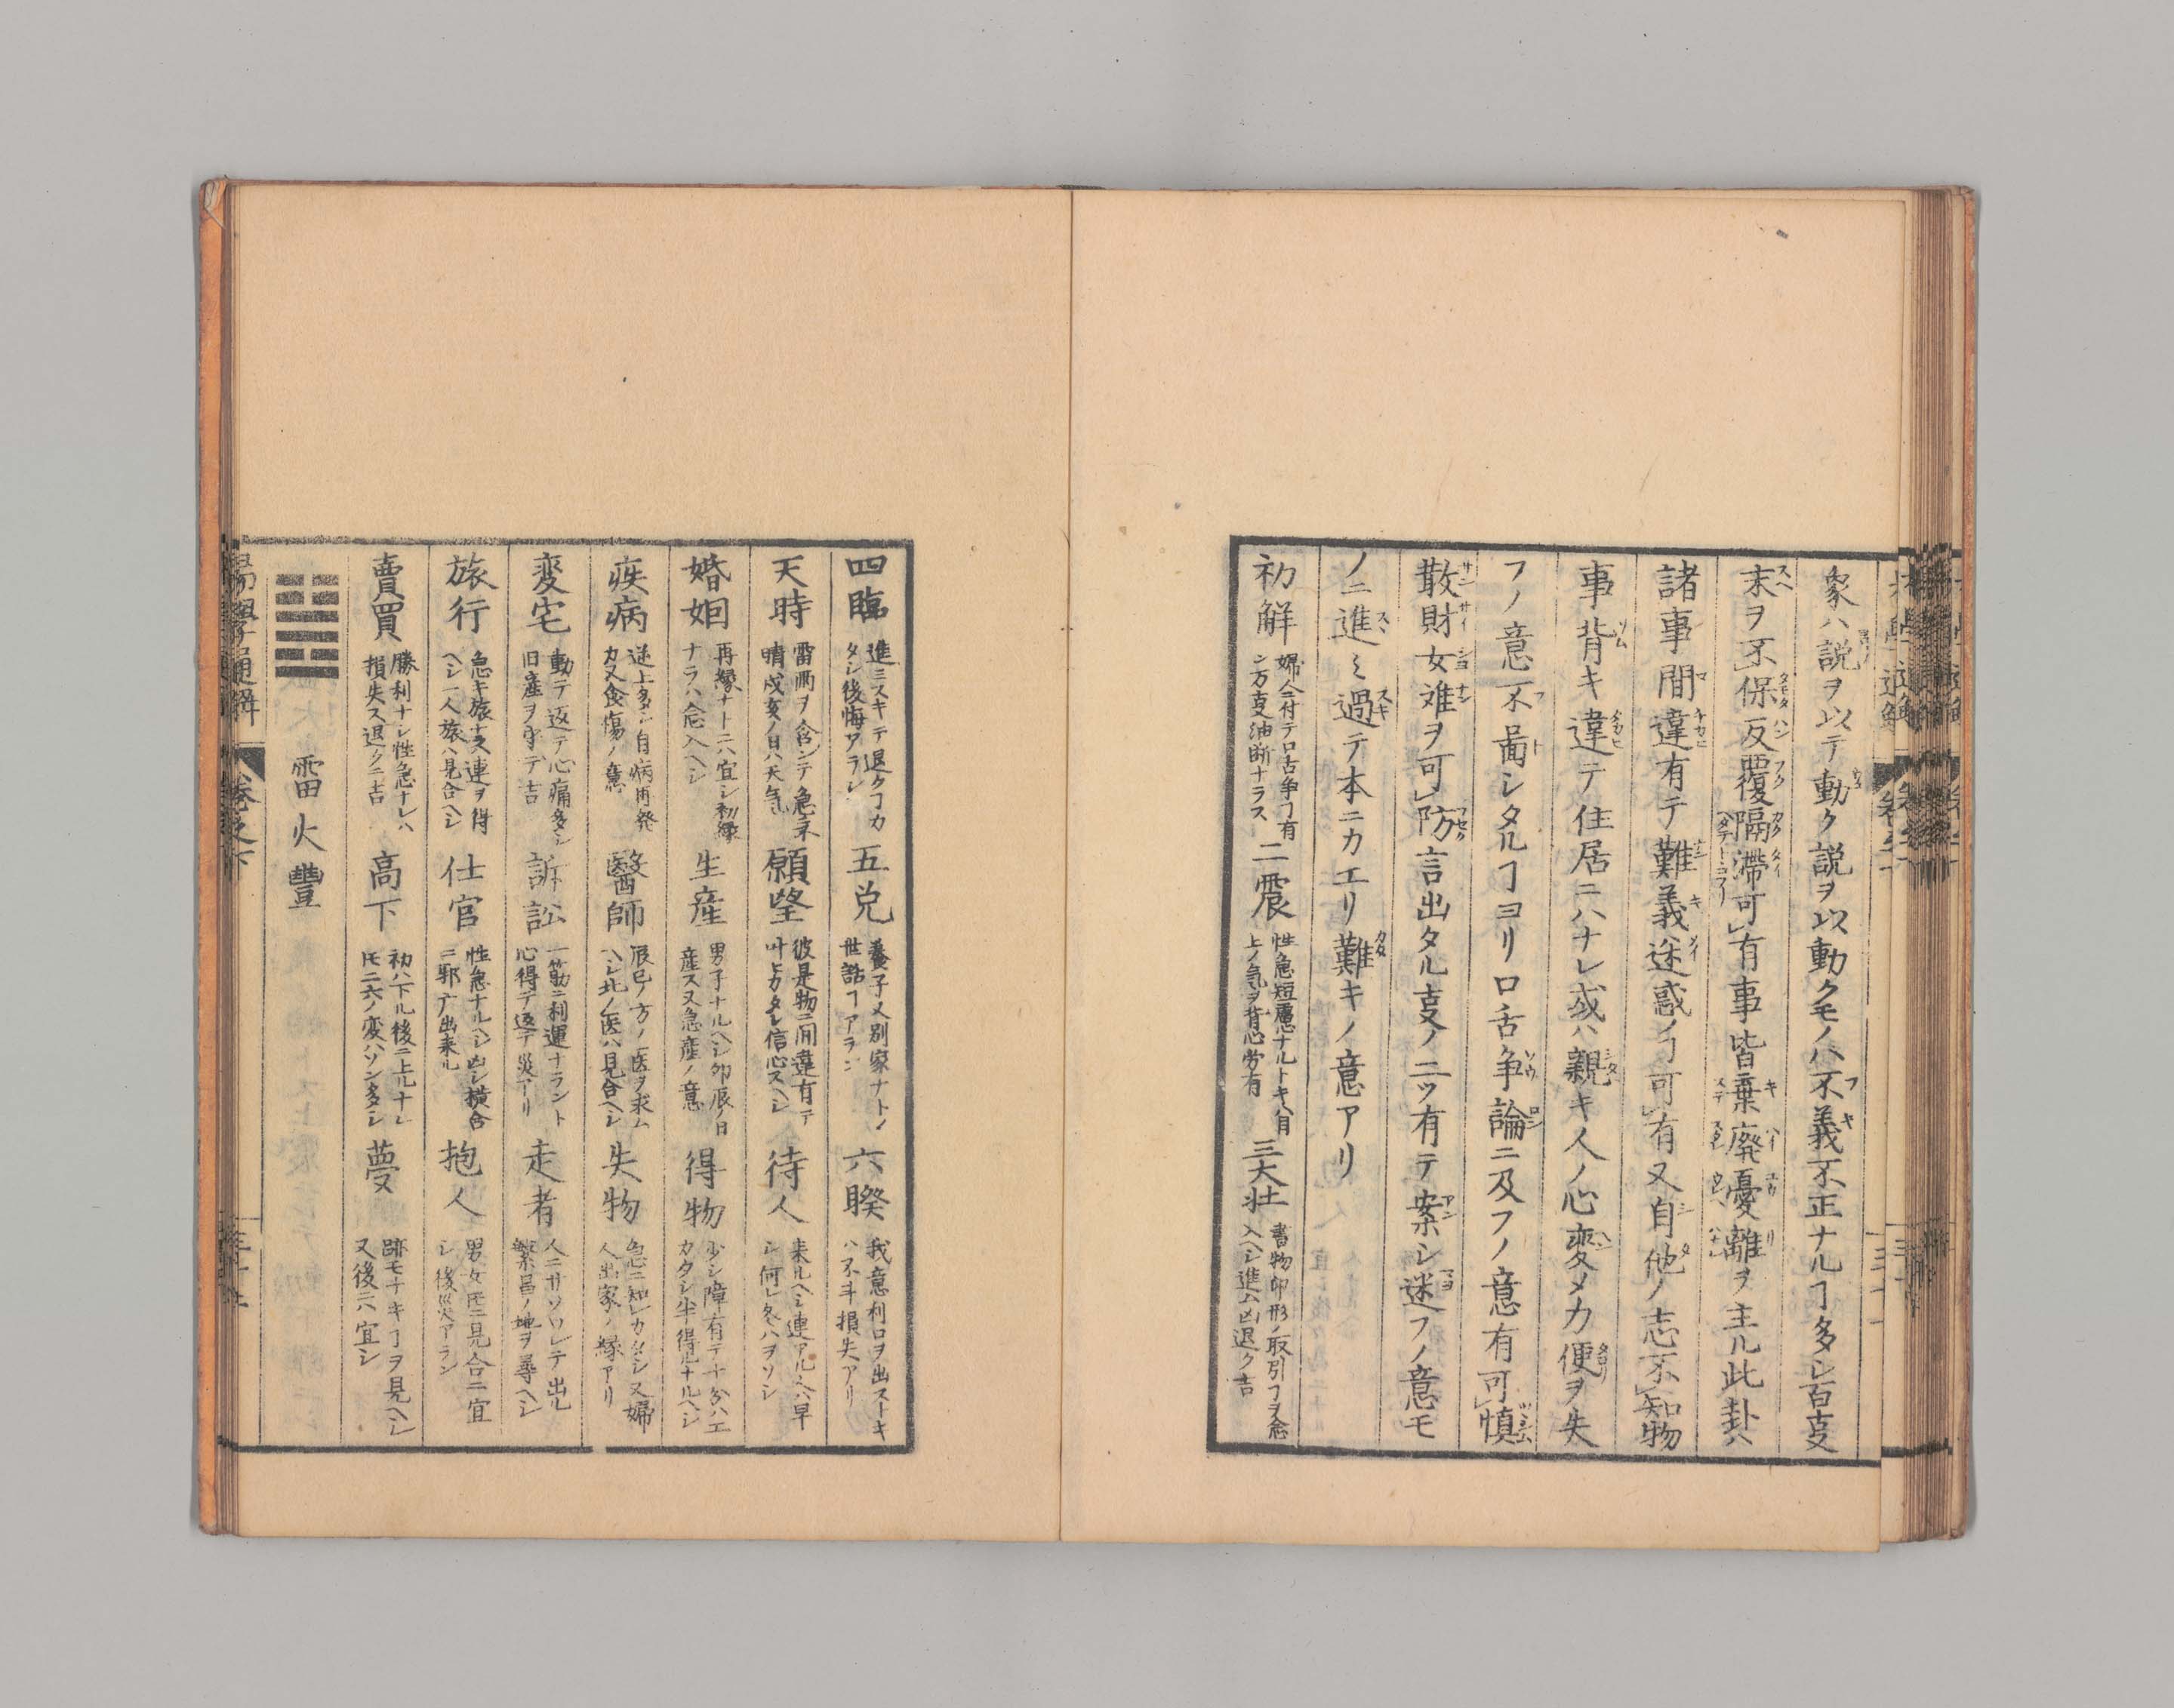 象ハ説ヲ以テ動ク説ヲ以動クモノハ不義不正ナルヿ多シ百㕝
末ヲ不保反覆隔滞可有事皆棄廃憂離ヲ主ル此卦ハ
諸事間違有テ難義迷惑ノヿ可有又自他ノ志不知物
事背キ違テ住居ニハナレ或ハ親キ人ノ心変メカ便ヲ失
フノ意不啚シタルヿヨリ口舌争論ニ及フノ意有可慎
散財女難ヲ可防言出タル㕝ノ二ツ有テ案シ迷フノ意モ
ノニ進ミ過テ本ニカエリ難キノ意アリ
初解
婦人ニ付テ口舌争ヿ有
シ万㕝油断ナラス
二震
性急短慮ナルトキハ目
上ノ気ヲ背心労有
三大壮
書物印形ノ取引ヿヲ念
入ヘシ進ムハ凶退ク吉
四臨
進ミスキテ退クヿカ
タシ後悔アラン
五兌
養子又別家ナトノ
世話ヿアラン
六睽
我意利口ヲ出ストキ
ハ不斗損失アリ
天時
雷雨ヲ含ンテ急ニ不
晴戌亥ノ日ハ天気
願望
彼是物ニ間違有テ
叶ヒカタシ信心スヘシ
待人
来ルヘシ連アルハ早
シ何レ冬ハヲソシ
婚姻
再縁ナトニハ宜シ初縁
ナラハ念入ヘシ
生産
男子ナルヘシ卯辰ノ日
産ス又急産ノ意
得物
少シ障有テ十分ハエ
カタシ半得ルナルヘシ
疾病
逆上多シ自病再発
カ又食傷ノ意
醫師
辰巳ノ方ノ医ヲ求ム
ヘシ北ノ医ハ見合ヘシ
失物
急ニ知レカタシ又婦
人出家ノ縁アリ
変宅
動テ返テ心痛多シ
旧産ヲ守テ吉
訴訟
一筋ニ利運ナラント
心得テ返テ災アリ
走者
人ニサソワレテ出ル
繁昌ノ地ヲ尋ヘシ
旅行
急キ旅ナラス連ヲ得
ヘシ一人旅ハ見合ヘシ
仕官
性急ナルヘシ凶シ横合
ニ邪广出来ル
抱人
男女氏ニ見合ニ宜
シ後災アラン
賣買
勝利ナシ性急ナレハ
損失ス退クニ吉
高下
初ハ下ル後ニ上ルナレ
氏二六ノ変ハソン多シ
夢
跡モナキヿヲ見ヘシ
又後ニハ宜シ
雷火豐
易學通解
巻之下